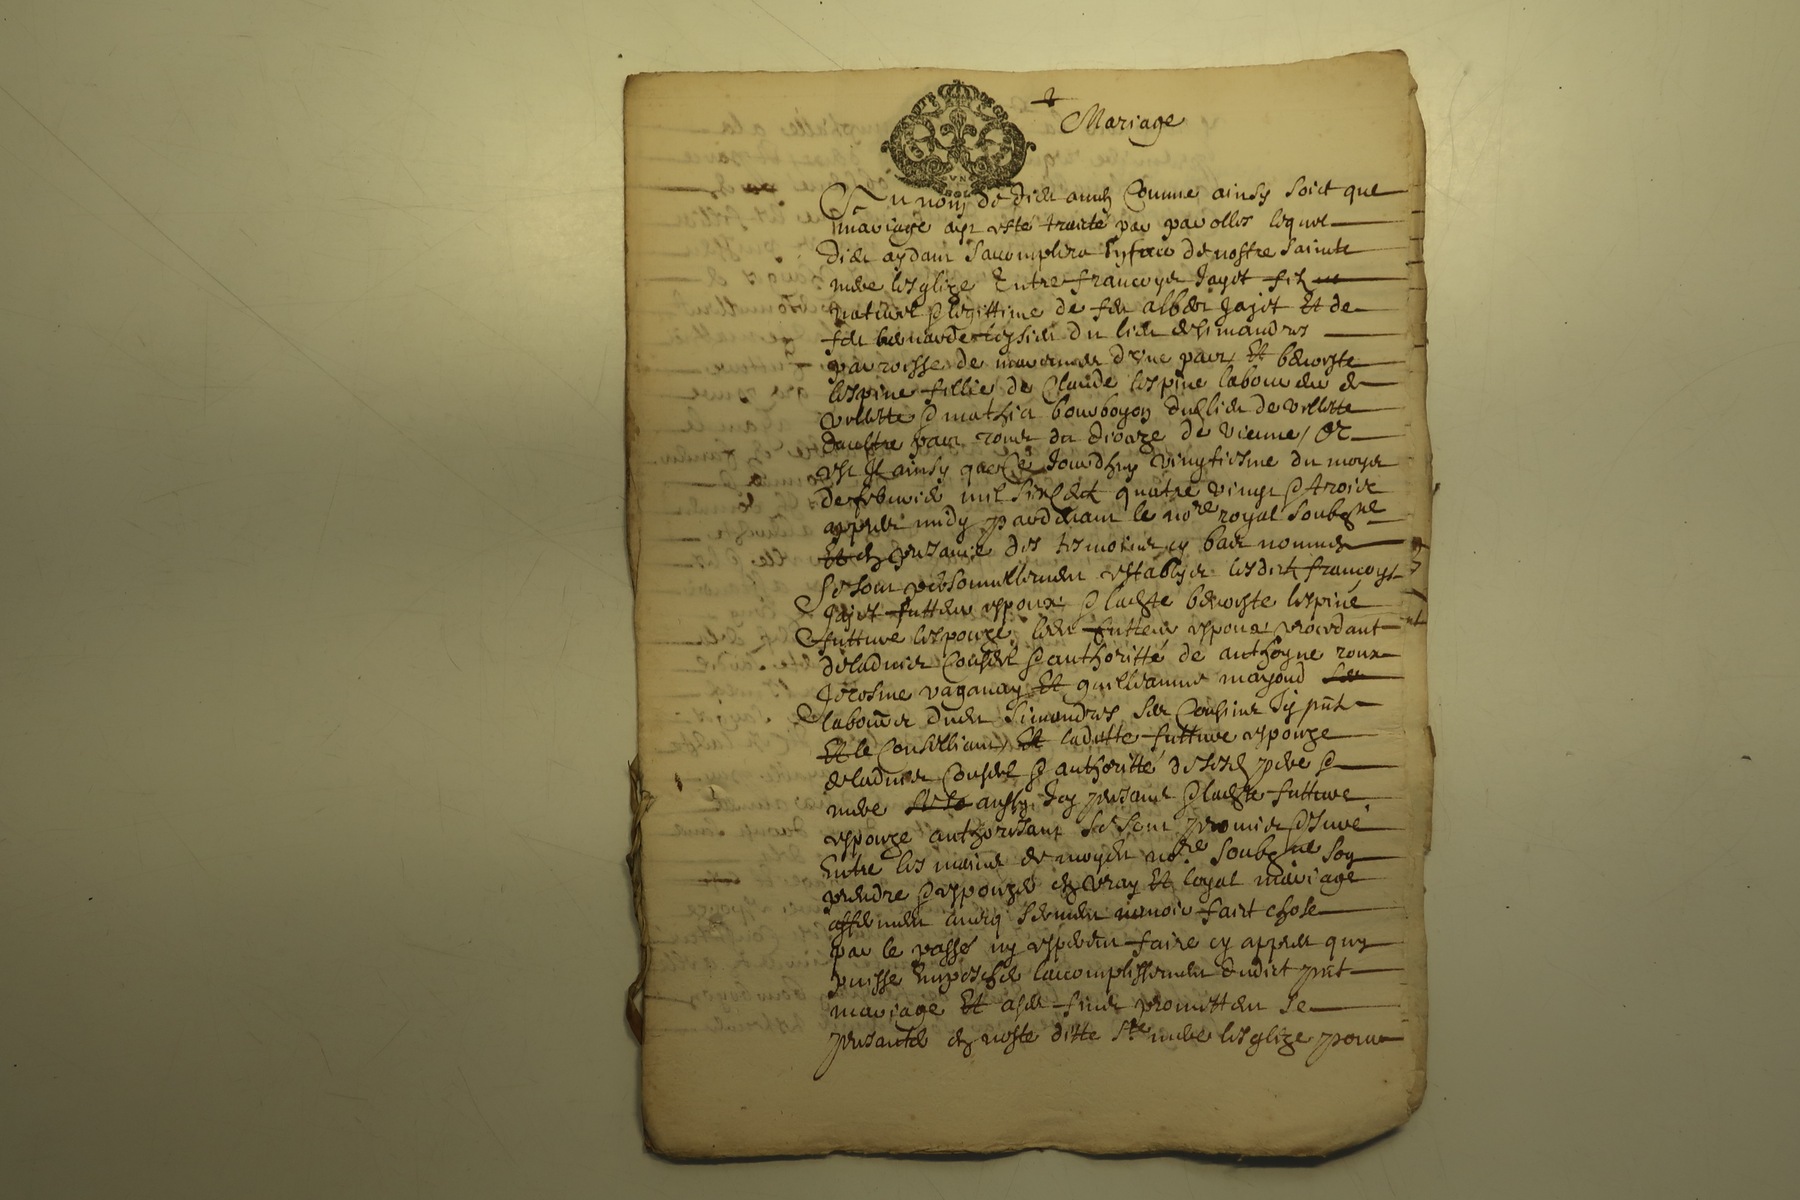 Mariage
Au nom de dieu amen Comme ainsy soict que
mariage aye esté traicté par parolles lequel
dieu aydant sacomplira en face de nostre saincte
mere lesglize Entre francoys Jayet filz
naturel & legittime de feu Jayet Et de
feu du lieu de simandres
parroisse de d'une part Et benoiste
lespine fillie de Claude lespine laboureur de
villette & mathia bourboyon dudit lieu de villette
daultre part du dioceze de vienne / Or
est Il ainsy que ce Jourdhuy vingtiesme du moys
de febvrier mil six cent quatre vingt & troix
appres midy pardevant le no.re royal soubz.ne
Et en presance des tesmoins cy bas nommes
se sont personnellement establys lesdict francoys
Jayet futteur espoux & ladicte benoiste lespine
futture lespouze, ledit futteur espoux procedant
de ladvis Conseil & authoritté de anthoyne roux
Jerosme vaganay Et guilliaume mayoud
labour.s dudit simandres ses Cousins Icy pnt
Et le Conselliant Et laditte futture espouze
de ladvis Conseil & authoritté de sesd pere &
mere aussy Icy presant & ladicte futture
espouze authorisant se sont promis & juré
Entre les mains de moydit no.re soubz.ne soy
prendre & espouzer en vray Et loyal mariage
affermant avecq serment navoir faict chose
par le passé ny esperent faire cy appres quy
puisse Empescher laccomplissement dudict pnt
mariage Et a ses fins promettent se
presanter en noste ditte s.te mere lesglize pour